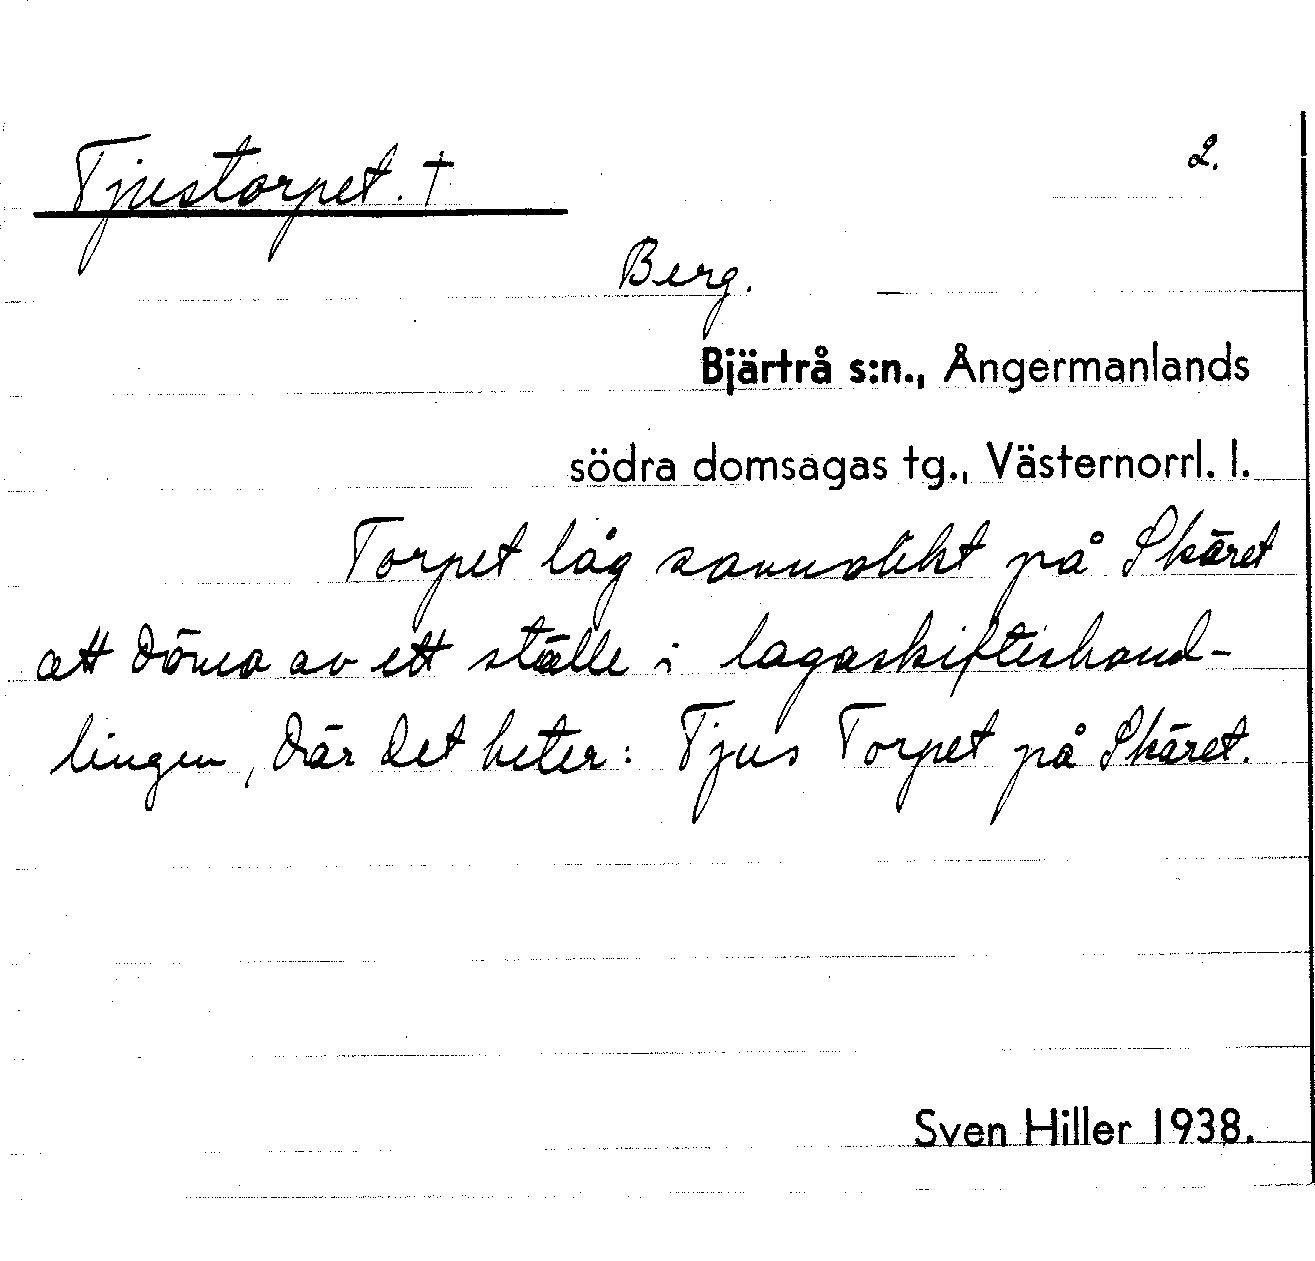 Tjustorpet. †
2.
Berg.
Bjärtrå s:n., Ångermanlands
södra domsagas tg., Västernorrl. l.
Torpet låg sannolikt på Skäret
att döma av ett ställe i lagaskifteshand-
lingen, där det heter: Tjus Torpet på Skäret.
Sven Hiller 1938.